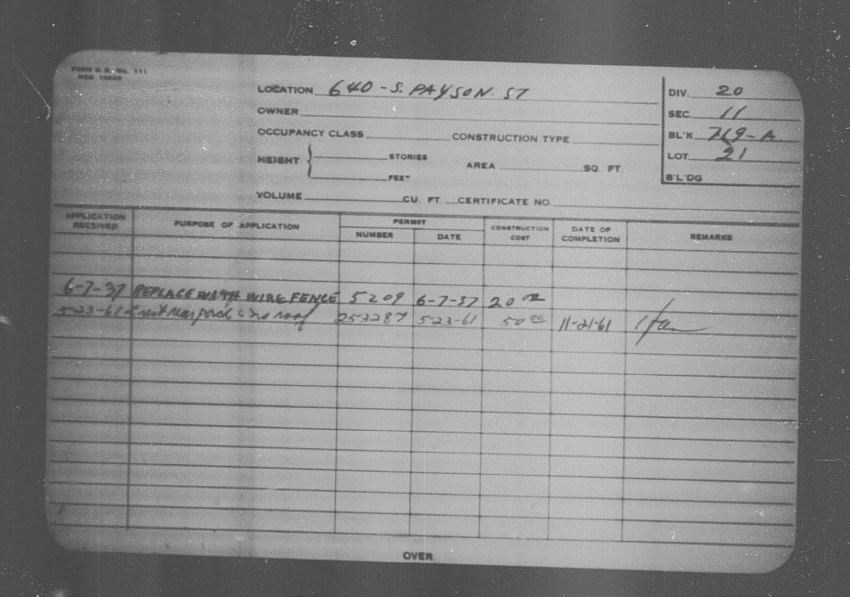 FORM B. B. No. 111
LOCATION 640 - S. PAYSON. ST
DIV. 20
OWNER
SEC. 11
OCCUPANCY CLASS CONSTRUCTION TYPE
BL'K 769-A
HEIGHT STORIES
FEET
AREA SQ. FT.
LOT 21
B'L'DG
VOLUME CU. FT. CERTIFICATE NO.
APPLICATION RECEIVED PURPOSE OF APPLICATION PERMIT NUMBER DATE CONSTRUCTION COST DATE OF COMPLETION REMARKS
6-7-37 REPLACE WITH WIRE FENCE 5209 6-7-37 20 00
5-23-61 rear porch no roof 252287 5-23-61 50 00 11-21-61
OVER